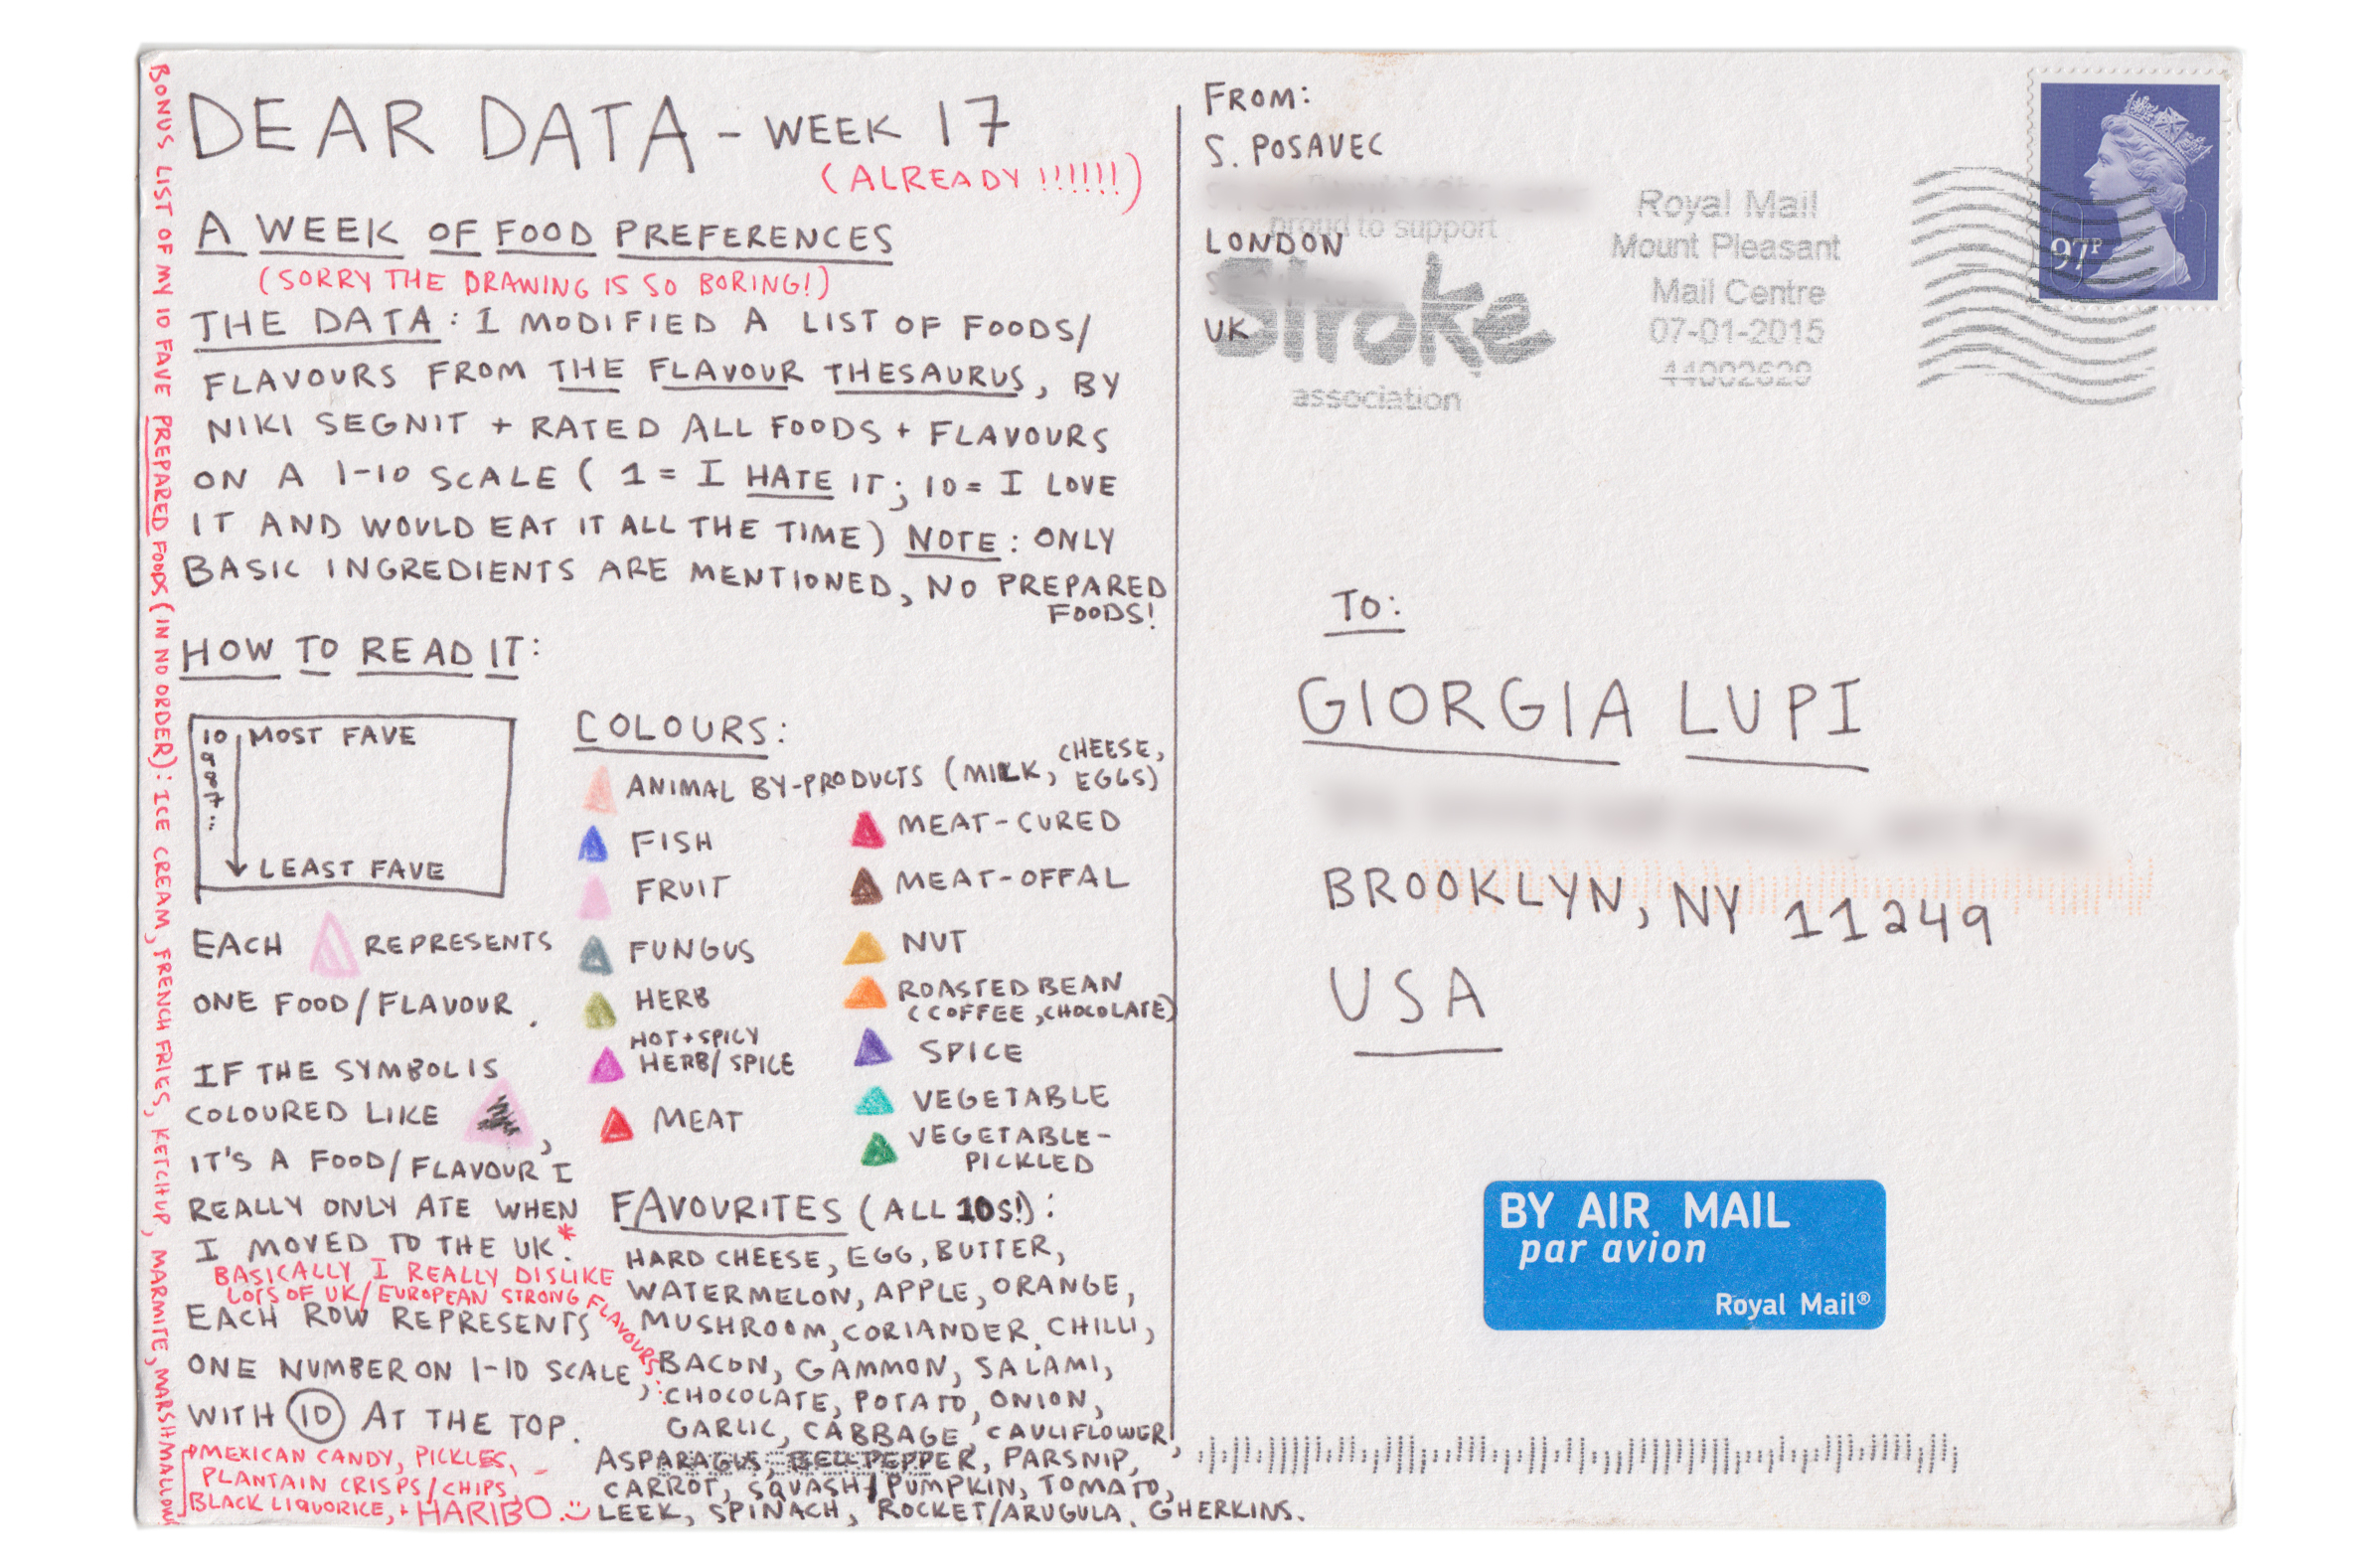 DEAR DATA - WEEK 17
(ALREADY!!!!!!)
A WEEK OF FOOD PREFERENCES
(SORRY THE DRAWING IS SO BORING!)
THE DATA: I MODIFIED A LIST OF FOODS/
FLAVOURS FROM THE FLAVOUR THESAURUS, BY
NIKI SEGNIT + RATED ALL FOODS + FLAVOURS
ON A 1-10 SCALE (1 = I HATE IT; 10 = I LOVE
IT AND WOULD EAT IT ALL THE TIME) NOTE: ONLY
BASIC INGREDIENTS ARE MENTIONED, NO PREPARED
FOODS!
HOW TO READ IT:
10 MOST FAVE
9
8
7
...
LEAST FAVE
EACH REPRESENTS
ONE FOOD/FLAVOUR.
IF THE SYMBOL IS
COLOURED LIKE ,
IT'S A FOOD/FLAVOUR I
REALLY ONLY ATE WHEN
I MOVED TO THE UK.*
BASICALLY I REALLY DISLIKE
LOTS OF UK/EUROPEAN STRONG FLAVOURS
EACH ROW REPRESENTS
ONE NUMBER ON 1-10 SCALE,
WITH 10 AT THE TOP.
COLOURS:
ANIMAL BY-PRODUCTS (MILK, CHEESE,
EGGS)
FISH
FRUIT
FUNGUS
HERB
HOT + SPICY
HERB/SPICE
MEAT
MEAT-CURED
MEAT-OFFAL
NUT
ROASTED BEAN
(COFFEE, CHOCOLATE)
SPICE
VEGETABLE
VEGETABLE-
PICKLED
FAVOURITES (ALL 10S!):
HARD CHEESE, EGG, BUTTER,
WATERMELON, APPLE, ORANGE,
MUSHROOM, CORIANDER, CHILLI,
BACON, GAMMON, SALAMI,
CHOCOLATE, POTATO, ONION,
GARLIC, CABBAGE, CAULIFLOWER,
ASPARAGUS, BELL PEPPER, PARSNIP,
CARROT, SQUASH/PUMPKIN, TOMATO,
LEEK, SPINACH, ROCKET/ARUGULA, GHERKINS.
BONUS LIST OF MY 10 FAVE PREPARED FOODS (IN NO ORDER): ICE CREAM, FRENCH FRIES, KETCHUP, MARMITE, MARSHMALLOWS
MEXICAN CANDY, PICKLES,
PLANTAIN CRISPS/CHIPS,
BLACK LIQUORICE, + HARIBO.
FROM:
S. POSAVEC
LONDON
UK
proud to support
Stroke
association
Royal Mail
Mount Pleasant
Mail Centre
07-01-2015
44002629
97P
TO:
GIORGIA LUPI
BROOKLYN, NY 11249
USA
BY AIR MAIL
par avion
Royal Mail®